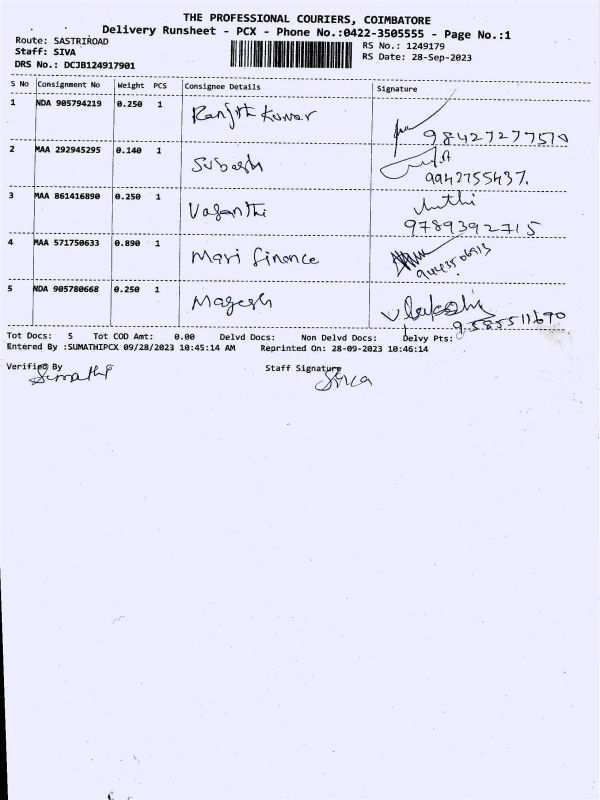 THE PROFESSIONAL COURIERS, COIMBATORE
Delivery Runsheet - PCX - Phone No.:0422-3505555 - Page No.:1
Route: SASTRIROAD
RS No.: 1249179
Staff: SIVA
RS Date: 28-Sep-2023
DRS No.: DCJB124917901
S No Consignment No Weight PCS Consignee Details Signature
1 NDA 905794219 0.250 1 Ranjith Kumar
98427 277570
2 MAA 292945295 0.140 1 Subash
9942755437.
3 MAA 861416890 0.250 1 Vasanthi
9789392715
4 MAA 571750633 0.890 1 Mari finance
9443506913
5 NDA 905780668 0.250 1 Magesh
9585511690
Tot Docs: 5 Tot COD Amt: 0.00 Delvd Docs: Non Delvd Docs: Delvy Pts:
Entered By :SUMATHIPCX 09/28/2023 10:45:14 AM Reprinted On: 28-09-2023 10:46:14
Verified By Staff Signature
Sumathi Siva